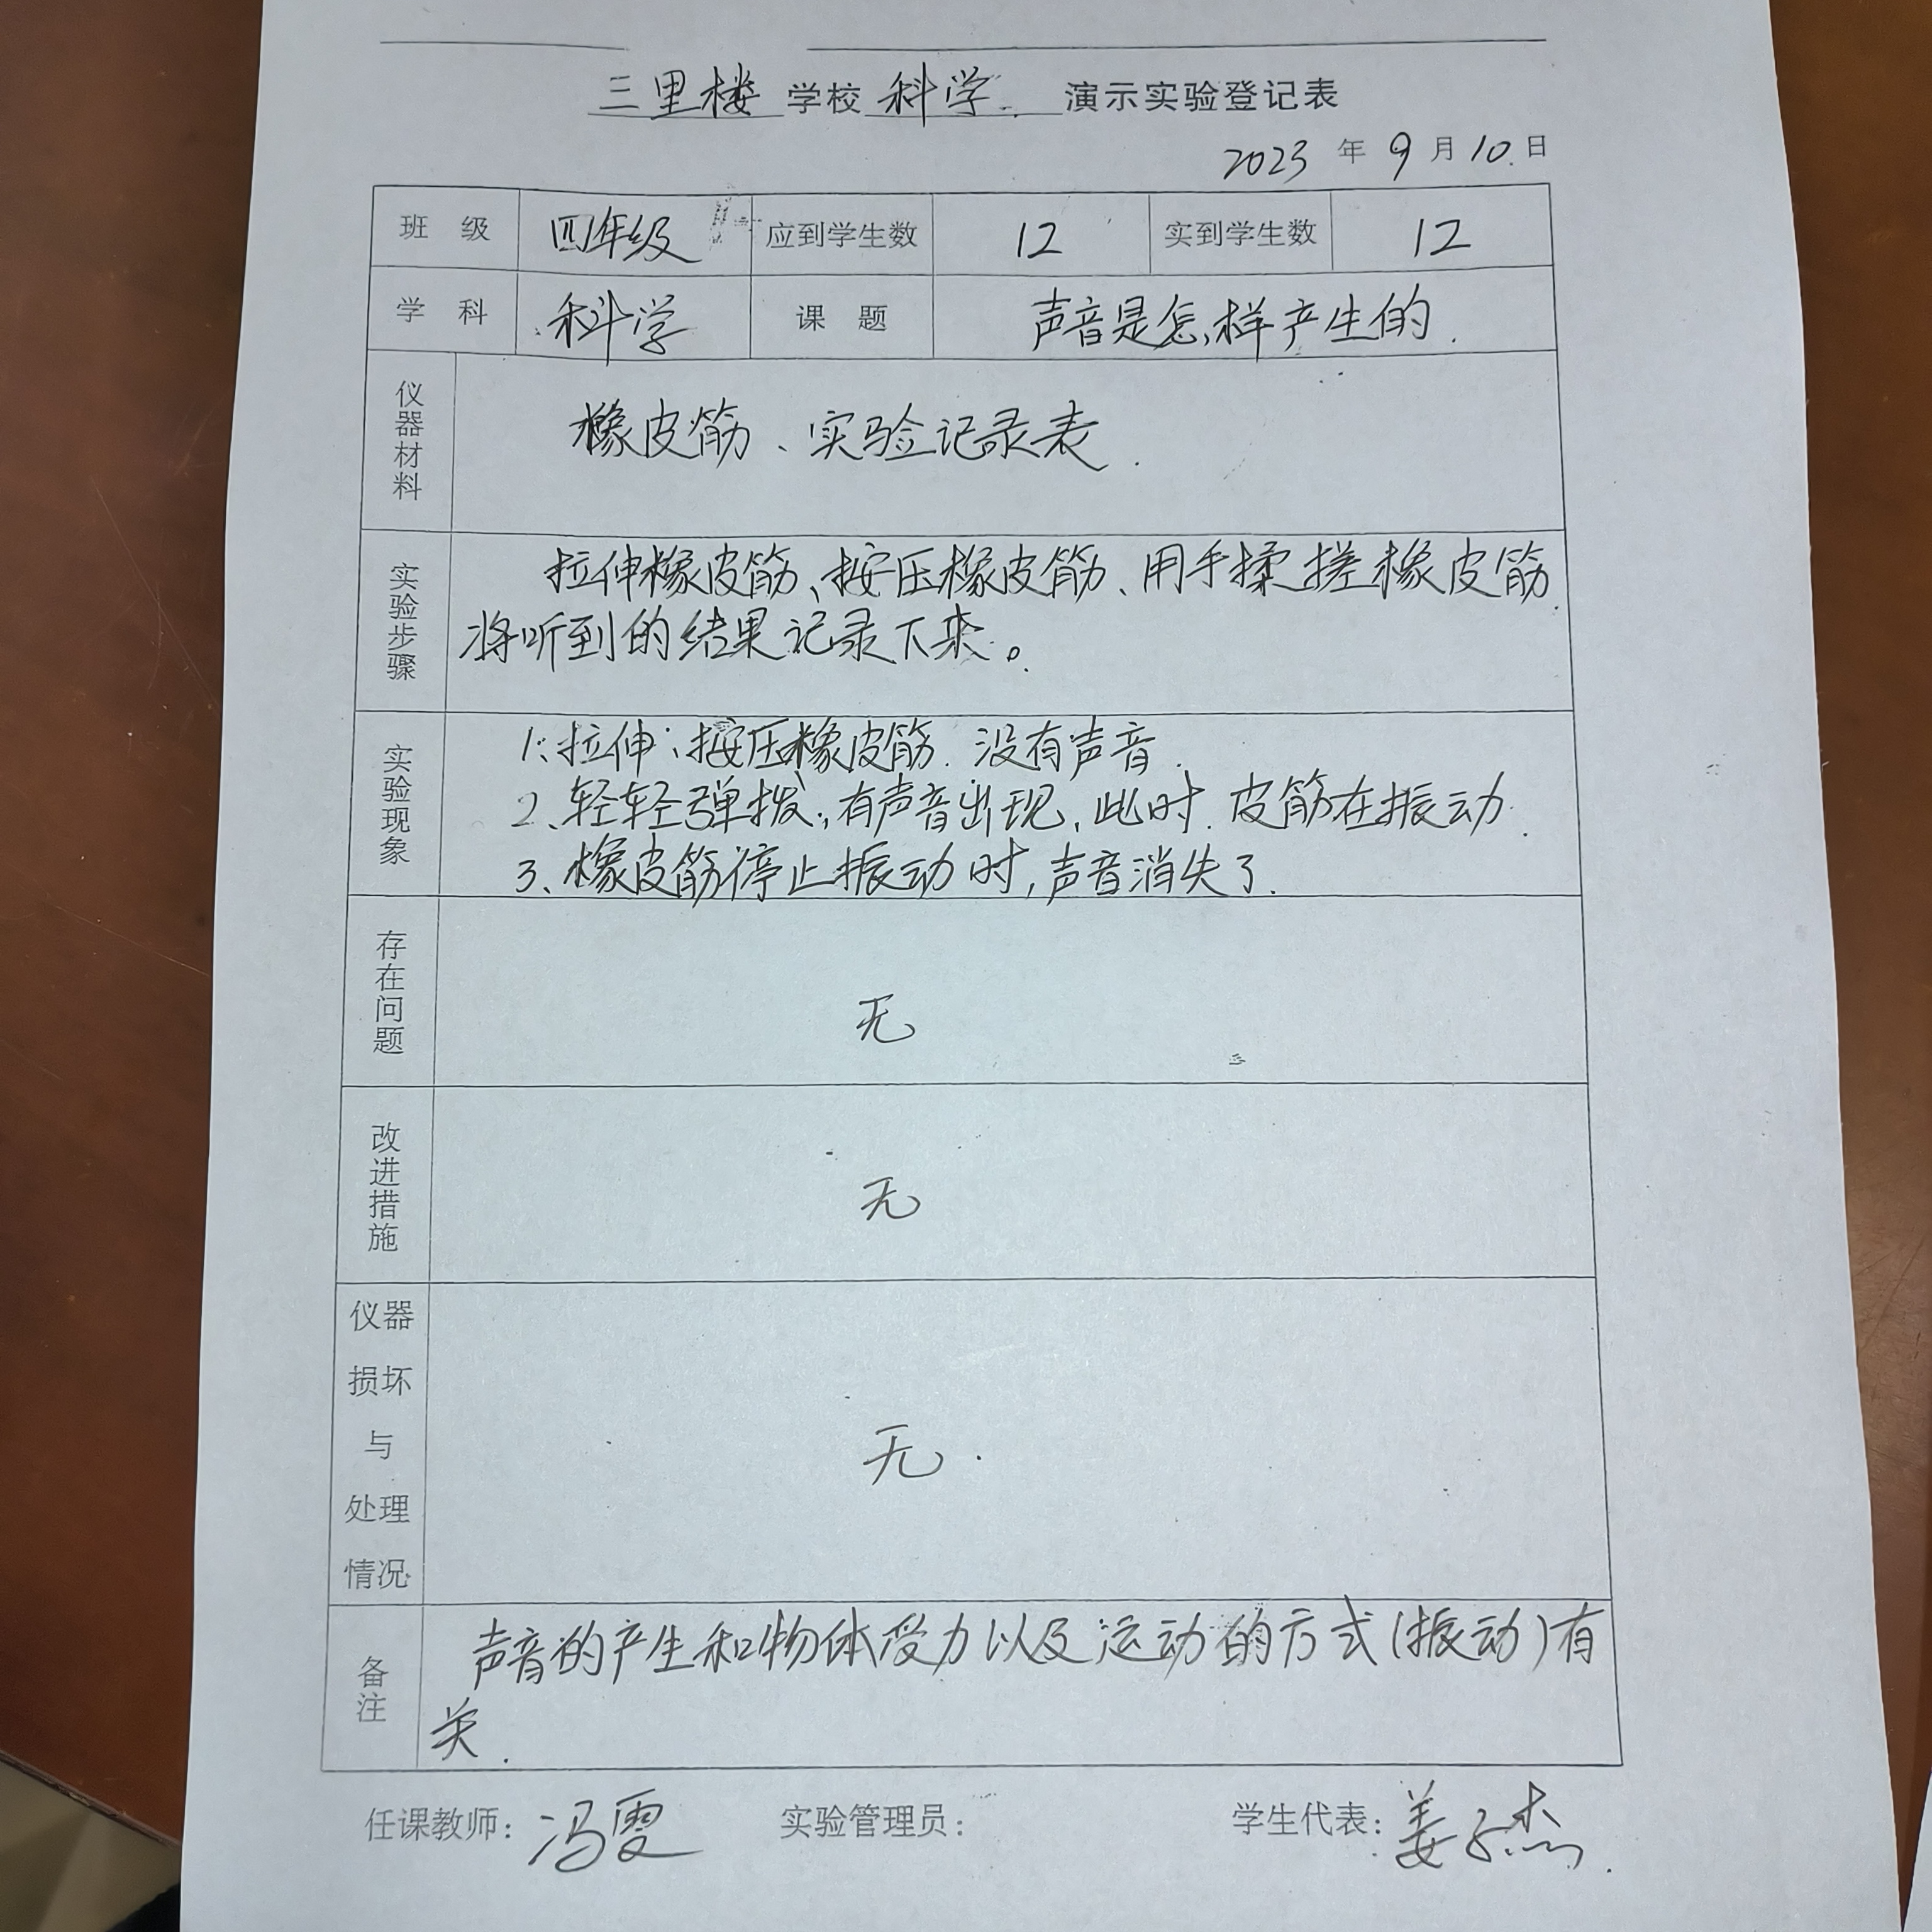 三里楼 学校 科学 演示实验登记表
2023 年 9 月 10 日
班 级 四年级 应到学生数 12 实到学生数 12
学 科 科学 课 题 声音是怎样产生的.
仪器材料
橡皮筋、实验记录表.
实验步骤
拉伸橡皮筋、按压橡皮筋、用手揉搓橡皮筋.
将听到的结果记录下来。
实验现象
1、拉伸、按压橡皮筋.没有声音.
2、轻轻弹拨,有声音出现,此时.皮筋在振动.
3、橡皮筋停止振动时,声音消失了.
存在问题
无
改进措施
无
仪器
损坏
与
处理
情况
无.
备注
声音的产生和物体受力以及运动的方式(振动)有
关.
任课教师: 冯雯 实验管理员: 学生代表: 姜子杰.